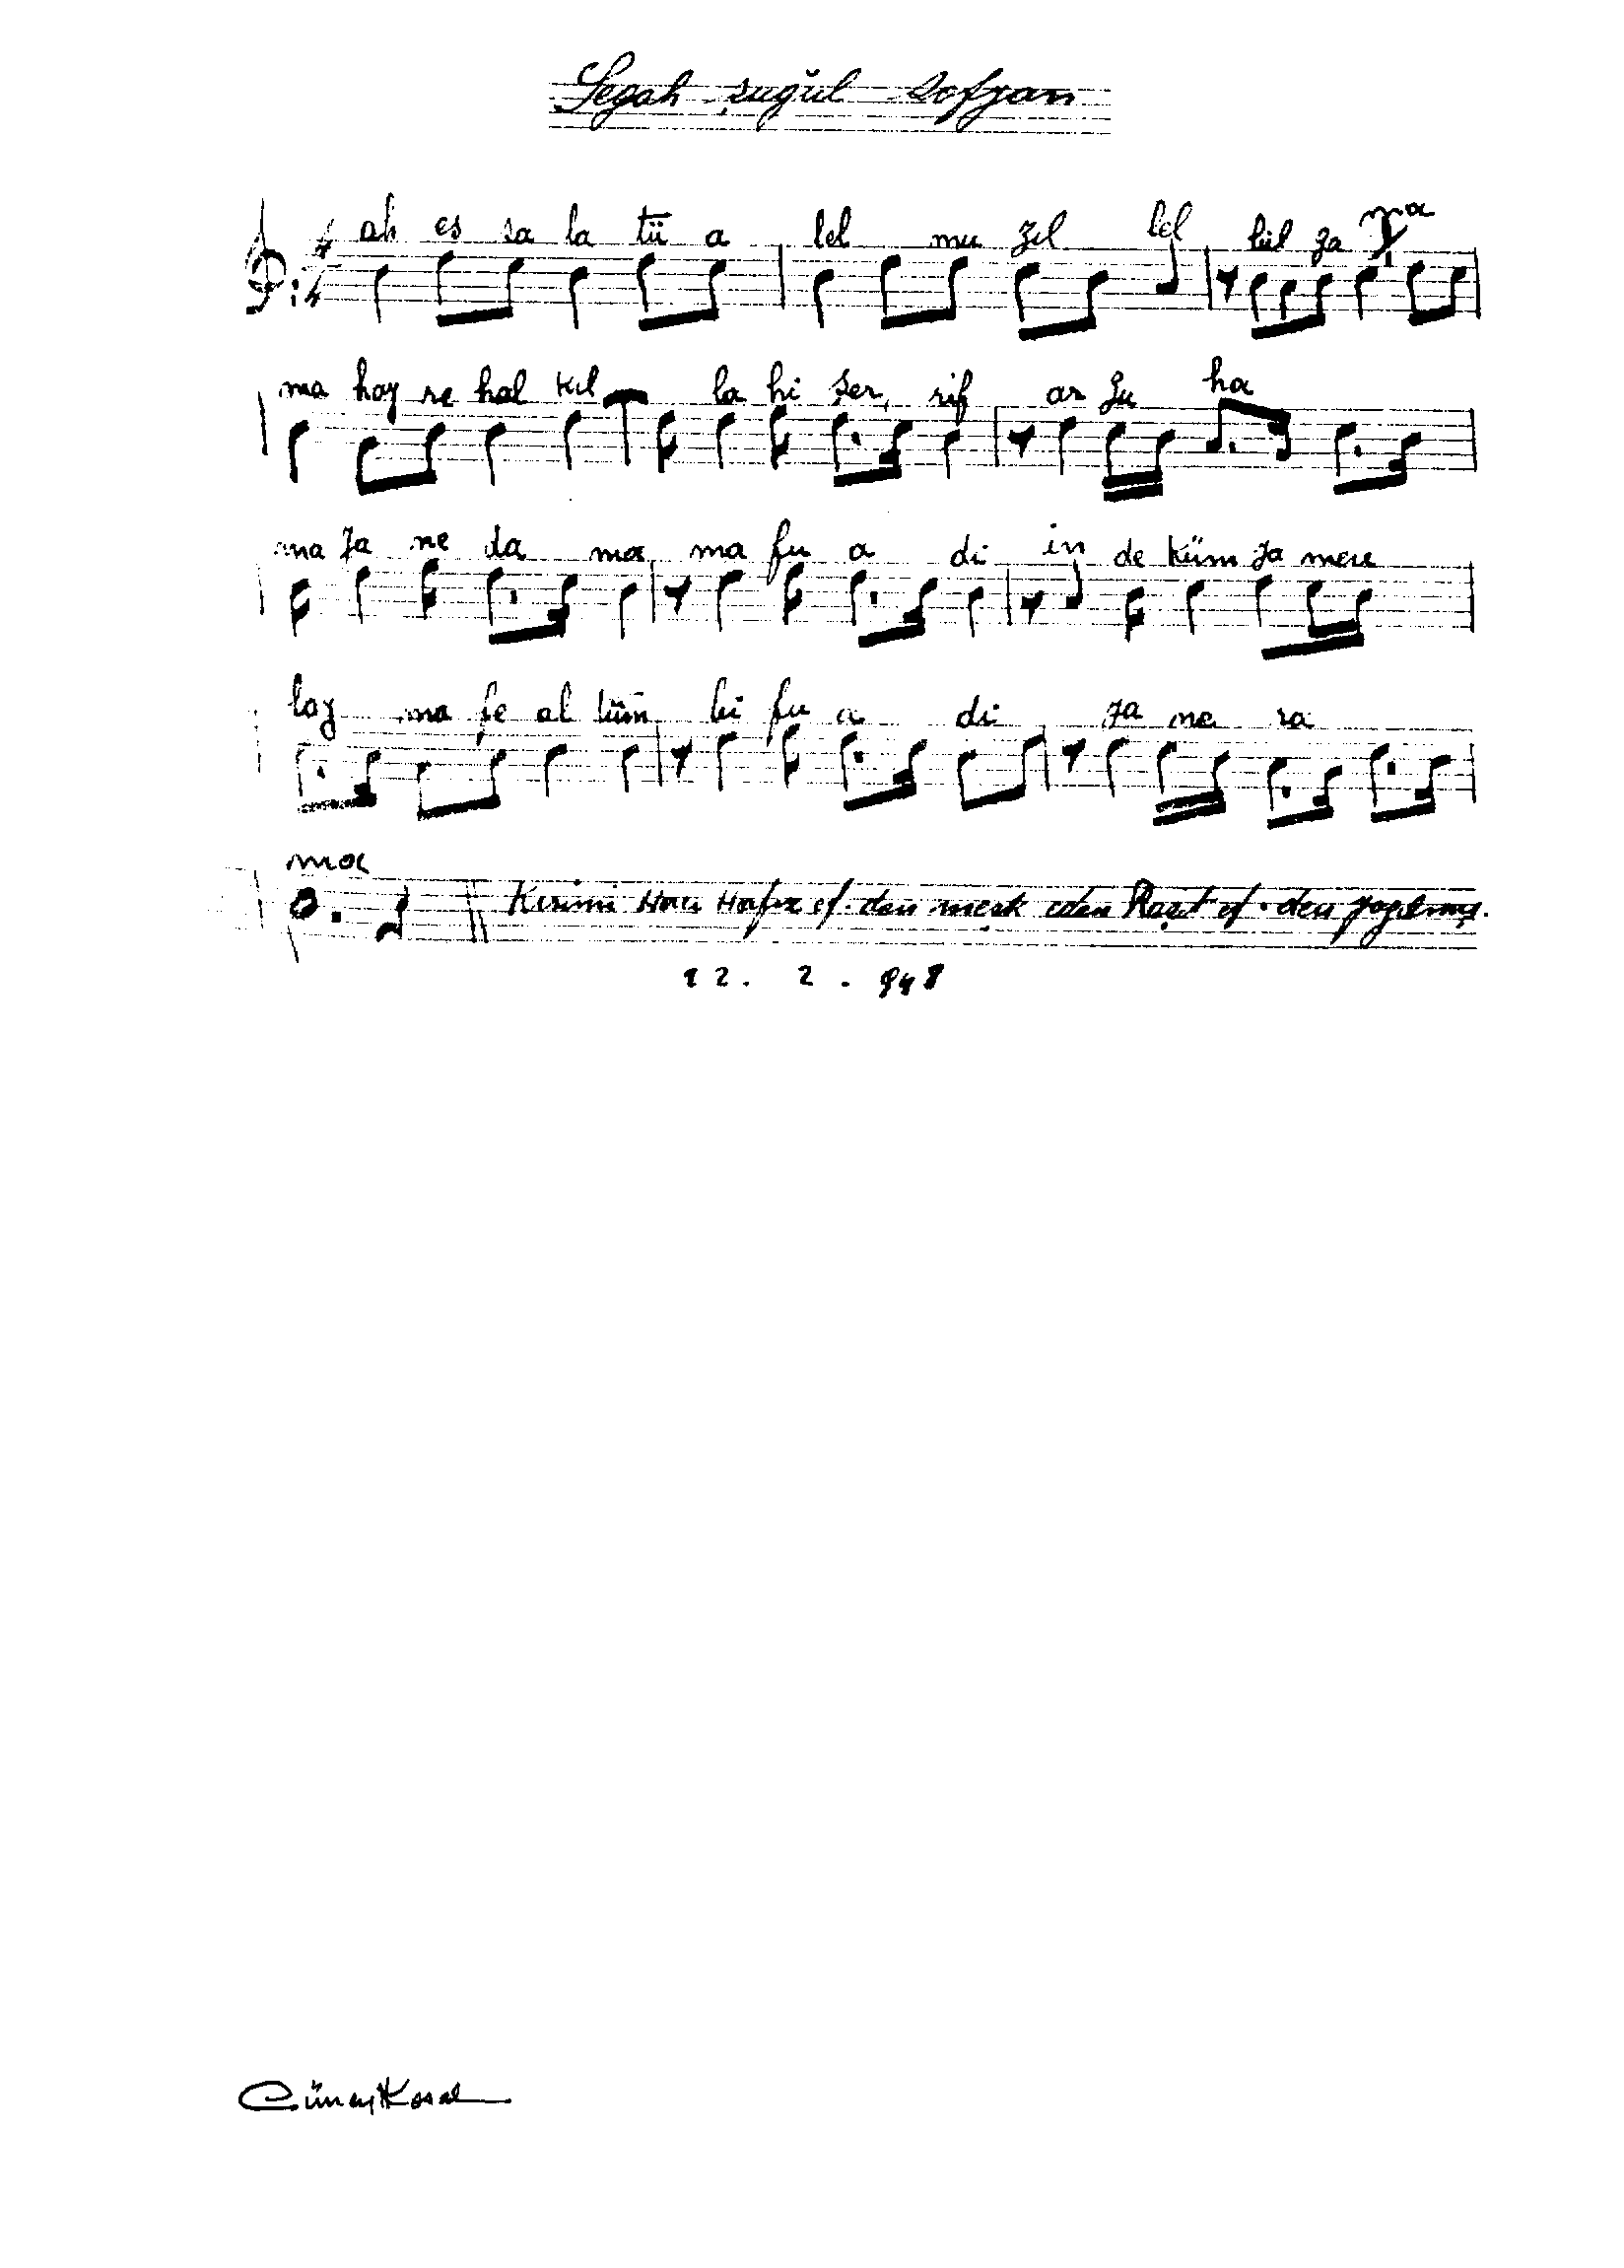 Segah şuğul Sofyan
4
4
ah es sa la tü a lel mu zıl lel lül za ma
ma hay re hal kıl la hi şer, rif ar zu ha
ma ya ne da ma ma fu a di in de küm ya meu
lay ma fe al tüm bi fu a di ya ne ra
ma
Kırımi Hacı Hafız ef. den meşk eden Raşit ef. den yazılmış.
12. 2. 948
Cüneyt Kosal